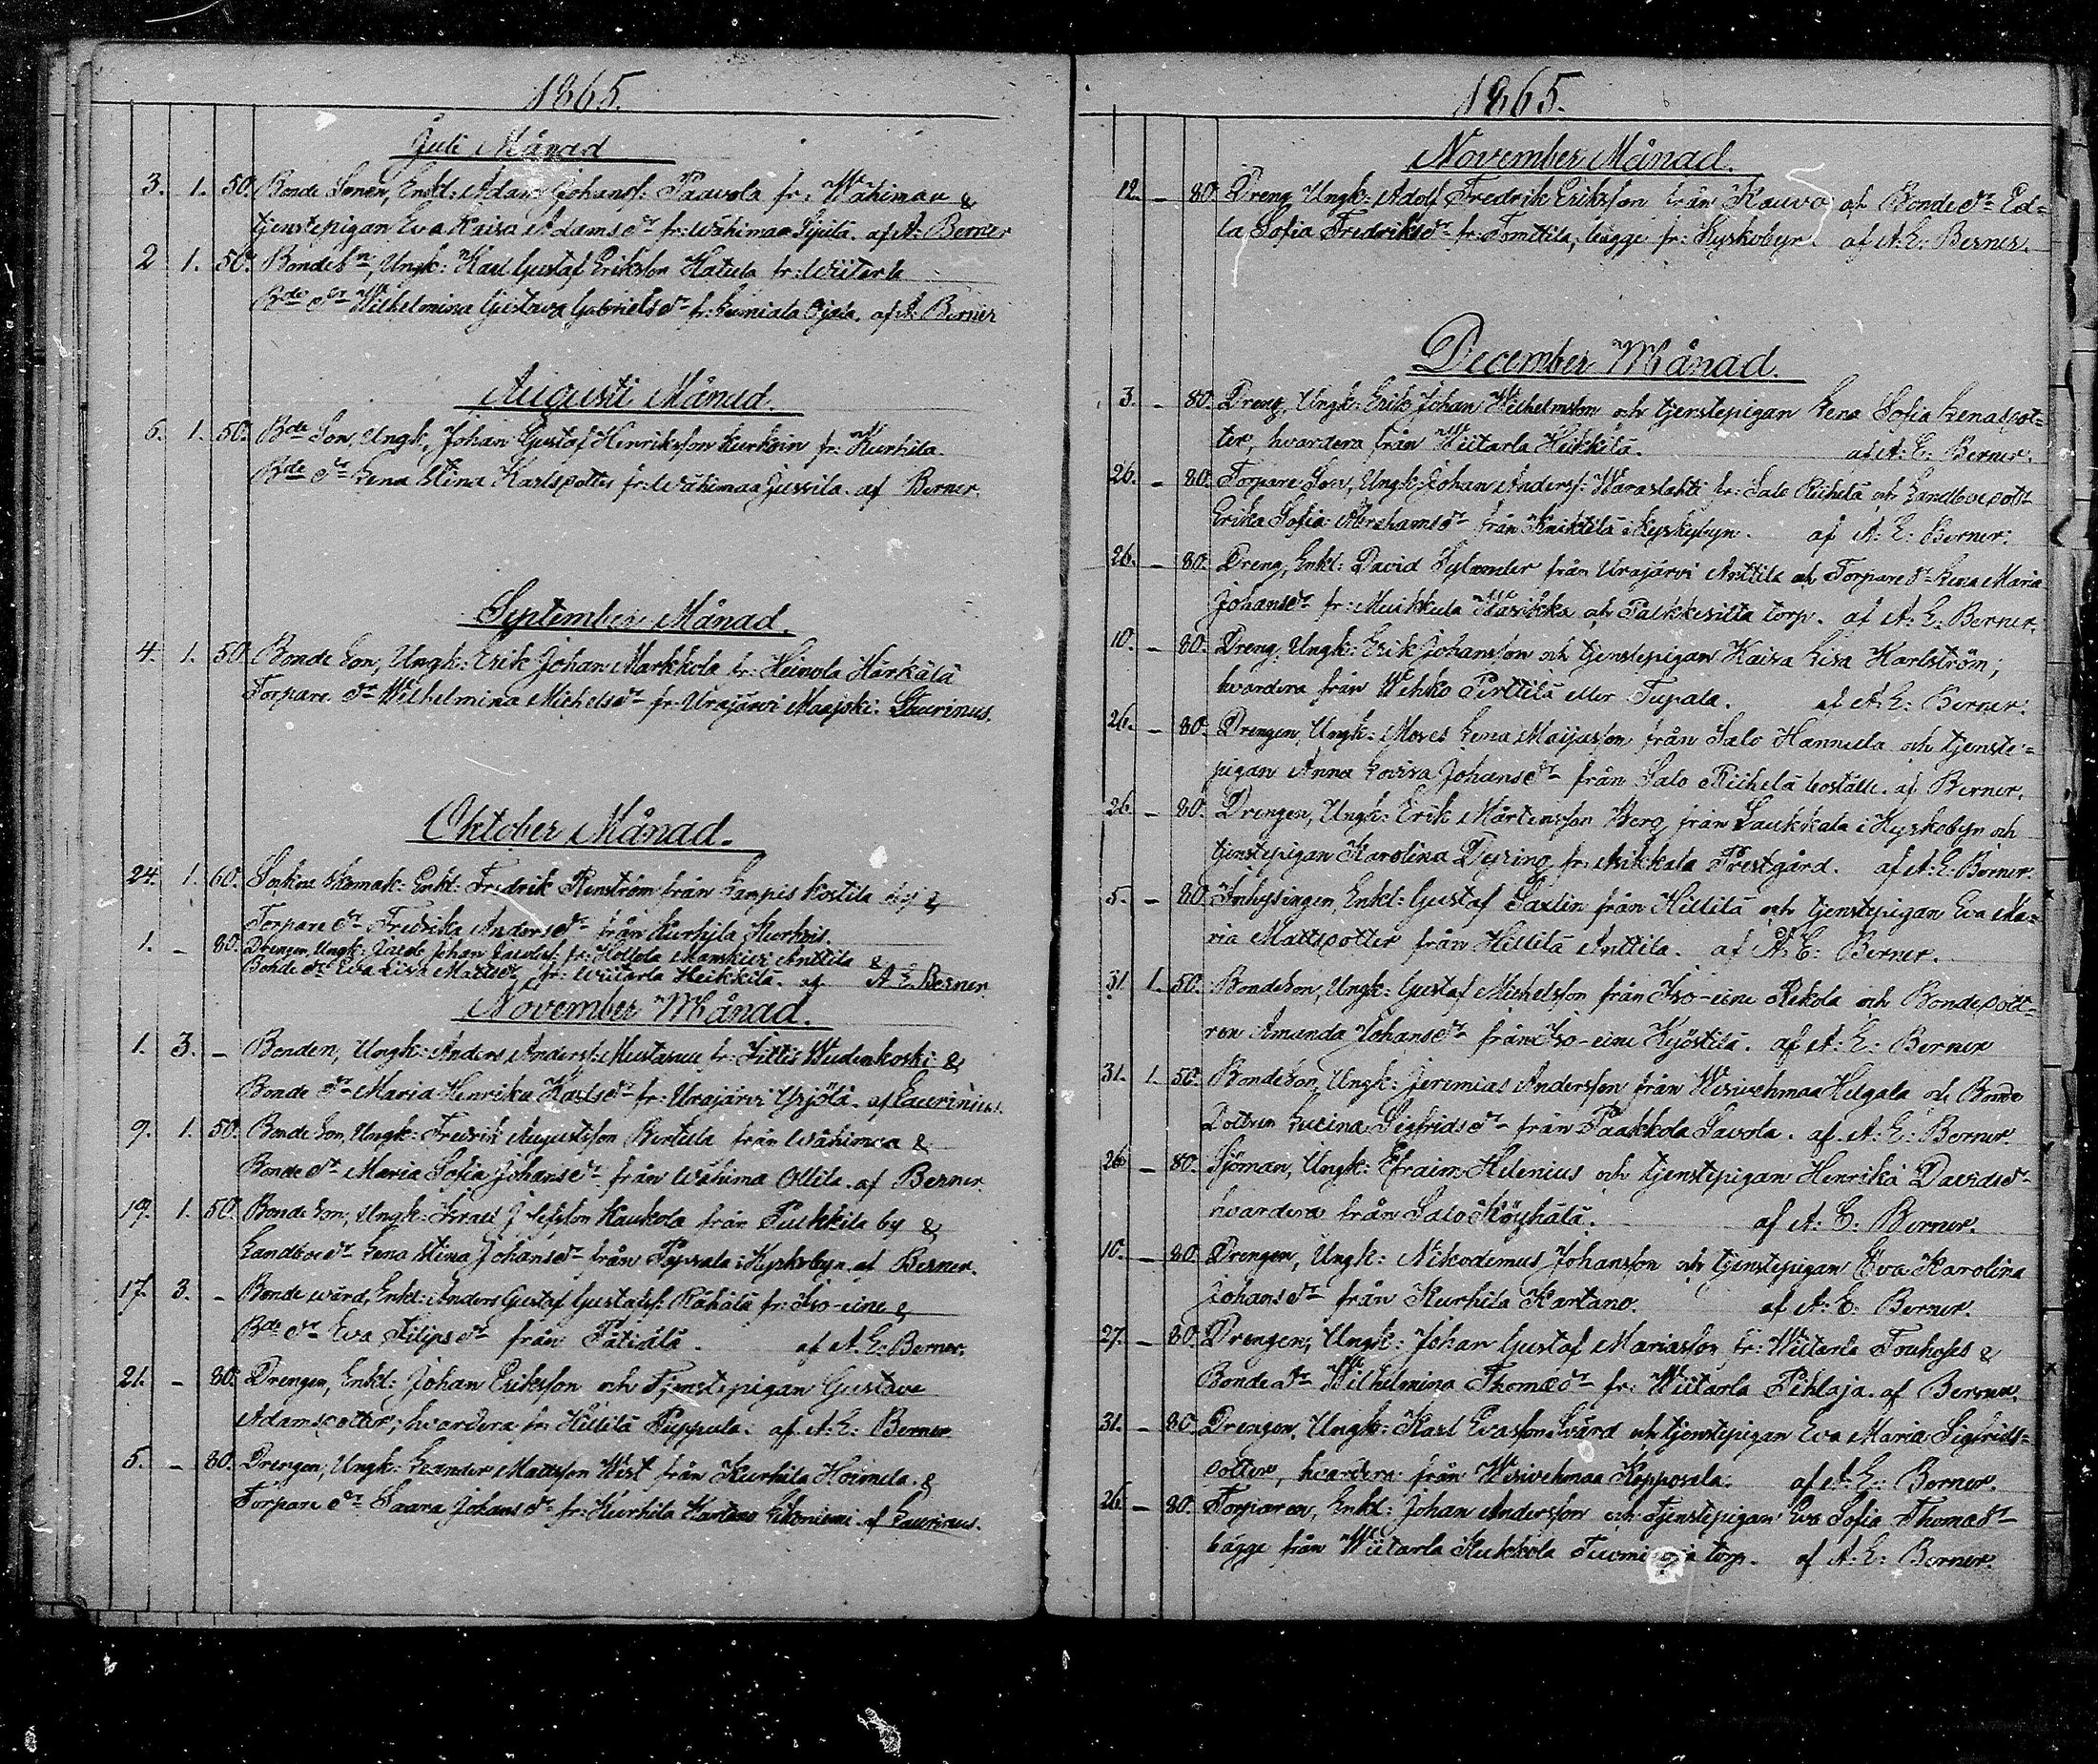 1865.
Juli Månad
3. 1. 50. Bonde Sonen, Enkl: Adam Johanss: Paavola fr: Wähimaa &
tjenstepigan Eva Kaisa Adamsdr fr: Wähimaa Sipilä. af A: Berner
2 1. 50. Bonde Sn, Ungk: Karl Gustaf Eriksson Katula fr: Wiitarla
Bde dr Wilhelmina Gustava Gabrielsdr fr: Kumiala Ojala. af A: Berner
Augusti Månad.
6. 1. 50. Bde Son, Ungk, Johan Gustaf Henriksson Kurkoin fr: Kurhila.
Bde dr Lena Stina Karlsdotter fr: Wähimaa Jussila. af Berner.
September Månad.
4. 1. 50. Bonde Son, Ungk: Erik Johan Markkola fr: Heinola Härkälä
Torpare dr Wilhelmina Michelsdr fr: Urajärvi Maajoki. Laurinus.
Oktober Månad.
24. 1. 60. Sockne Skomak: Enkl: Fredrik Renström från Lampis Kostila by &
Torpare dr Fredrika Andersdr från Kurhila Kurkois.
1. - 80. Drengen, Ungk: Jakob Johan fr: Hollola Manskivi Anttila &
Bonde dr Eva Lisa Mattsdr fr: Wiitarla Heikkilä. af A E. Berner.
November Månad.
1. 3. - Bonden, Ungk: Anders Anderss: Mustasuu fr: Jittis Wudenkoski &
Bonde dr Maria Henrika Karlsdr fr: Urajärvi Yrjölä. af Laurinius.
9. 1. 50. Bonde Son, Ungk: Fredrik Augustsson Birtula från Wähimaa &
Bonde dr Maria Sofia Johansdr från Wähima Ollila. af Berner.
19. 1. 50. Bonde Son, Ungk: Israel Josefsson Kaukola från Pulkkila by &
Landboe dr Lena Stina Johansdr från Papsala i Kyrkobyn. af Berner.
17. 3. - Bonde wärd, Enkl: Anders Gustaf Gustafss: Rähälä fr: Iso-eine &
Bde dr Eva Filipsdr från Pätiälä. af A. E: Berner.
21. - 80. Drengen, Enkl: Johan Eriksson och Tjenstepigan Gustava
Adamsdotter, hvardera fr: Hillilä Puppula. af A: E: Berner.
5. - 80. Drengen, Ungk: Leander Mattsson Wist från Kurhila Hoimela. &
Torpare dr Saara Johansdr fr: Kurhila Kartano af Laurinus.
1865.
November Månad.
12. - 80. Dreng Ungk: Adolf Fredrik Eriksson från Kauvo och Bonde dr Ed=
la Sofia Fredriksdr fr: Tomttila, bägge fr: Kyrkobyn. af A: E: Berner.
December Månad.
3. - 80. Dreng, Ungk: Erik Johan Wilhelmsson och tjenstepigan Lena Sofia Lenasdot=
ter, hvardera från Wiitarla Heikkilä. af A: E: Berner.
26. - 80. Torpare Son, Ungk: Johan Anderss: Waraslahti fr: Salo Riihelä och Landboedott
Erika Sofia Abrahamsdr från Knihtilä i Kyrkobyn. af A: E: Berner.
26. - 80. Dreng, Enkl: David Sylander från Urajärvi Anttila och Torpare dr Lena Maria
Johansdr fr: Muikkula Warikka och Palkkisilta torp. af A: E: Berner.
10. - 80. Dreng, Ungk: Erik Johansson och tjenstepigan Kaisa Lisa Karlström;
hvardera från Wehko Pirttilä eller Tupala. af A: E: Berner.
26. - 80. Drengen, Ungk: Moses Lena Maijasson från Salo Hannula och tjenste=
pigan Anna Lovisa Johansdr från Salo Riihelä boställe. af Berner.
26. - 80. Drengen, Ungk: Erik Mårtensson Berg från Laukkala i Kyrkobyn och
tjenstepigan Karolina Dyring fr: Asikkala Prestgård. af A: E: Berner.
5. - 80. Inhysingen, Enkl: Gustaf Saxlin från Hillilä och tjenstepigan Eva Ma=
ria Mattsdotter från Hillilä Anttila. af A: E: Berner.
31. 1. 50. Bonde Son, Ungk: Gustaf Michelsson från Iso-eine Rekola och Bondedott=
ren Amanda Johansdr från Iso-eine Kyöstilä. af A: E: Berner
31. 1. 50. Bonde Son, Ungk: Jeremias Andersson från Wesivehmaa Helgala och Bonde
Dottren Lucina Sigfridsdr från Paakkola Savola. af A: E: Berner.
26 - 80. Sjöman, Ungk: Efraim Helenius och tjenstepigan Henrika Davidsdr
hvardera från Salo Köyhälä. af A: E: Berner.
10. - 80. Drengen, Ungk: Nikodemus Johansson och tjenstepigan Eva Karolina
Johansdr från Kurhila Kartano. af A: E: Berner.
27. - 80. Drengen, Ungk: Johan Gustaf Mariasson fr: Wiitarla Touhofs &
Bonde dr Wilhelmina Thomædr fr: Wiitarla Pihlaja. af Berner.
31. - 80. Drengen, Ungk: Karl Evasson Svärd och tjenstepigan Eva Maria Sigfrids=
dotter, hvardera från Wesivehmaa Kopposala. af A: E: Berner.
26 - 80. Torparen, Enkl: Johan Andersson och Tjenstepigan Eva Sofia Thomædr
bägge från Wiitarla Kukkola torp. af A: E: Berner.